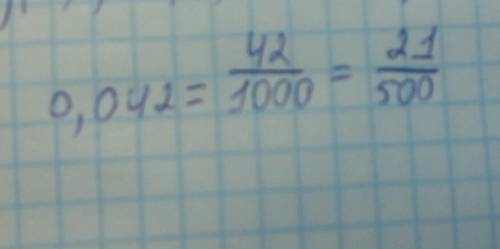 0,042 = 42/1000 = 21/500